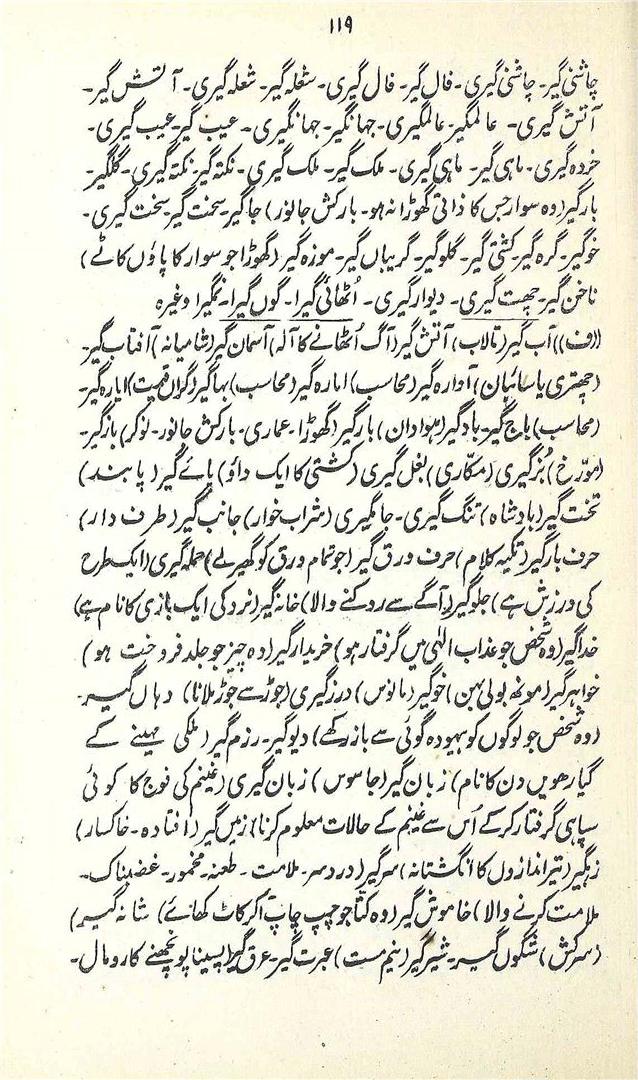 ۱۱۹
چاشنی گیر۔ چاشنی گیری۔ فال گیر۔ فال گیری۔ شعلہ گیر۔ شعلہ گیری۔ آتش گیر۔
آتش گیری۔ عالمگیر۔ عالمگیری۔ جہانگیر۔ جہانگیری۔ عیب گیر۔ عیب گیری۔
خردہ گیری۔ ماہی گیر۔ ماہی گیری۔ ملک گیر۔ ملک گیری۔ نکتہ گیر۔ نکتہ گیری۔ گلگیر۔
بارگیر (وہ سوار جس کا ذاتی گھوڑا نہ ہو۔ بارکش جانور) جاگیر۔ سخت گیر۔ سخت گیری۔
خوگیر۔ گرہ گیر۔ کشتی گیر۔ گلوگیر۔ گریباں گیر۔ موزہ گیر (گھوڑا جو سوار کا پاؤں کاٹے)
ناخن گیر۔ چھت گیری۔ دیوار گیری۔ اُٹھائی گیرا۔ گوں گیرا۔ نمگیرا وغیرہ
((ف)) آب گیر (تالاب) آتش گیر (آگ اُٹھانے کا آلہ) آسمان گیر (شامیانہ) آفتاب گیر۔
(چھتری یا سائبان) آوارہ گیر (محاسب) امارہ گیر (محاسب) بہاگیر (گراں قیمت) ایارہ گیر۔
(محاسب) باج گیر۔ بادگیر (ہوادان) بارگیر (گھوڑا۔ عماری۔ بارکش جانور۔ نوکر) بازگیر۔
(مورّخ) بُزگیری (مکّاری) بغل گیری (کشتی کا ایک داؤ) پائے گیر (پابند)
تخت گیر (بادشاہ) تنگ گیری۔ جامگیری (شراب خوار) جانب گیر (طرف دار)
حرف بارگیر (تکیہ کلام) حرف ورق گیر (جو تمام ورق کو گھیر لے) حملہ گیری (ایک طرح
کی ورزش ہے) جلوگیر (آگے سے روکنے والا) خانہ گیر (نرد کی ایک بازی کا نام ہے)
خداگیر (وہ شخص جو عذاب الٰہی میں گرفتار ہو) خریدار گیر (وہ چیز جو جلد فروخت ہو)
خواہر گیر (مونھ بولی بہن) خوگیر (مانوس) درزگیری (جوڑ سے جوڑ ملانا) دہاں گیر۔
(وہ شخص جو لوگوں کو بیہودہ گوئی سے باز رکھے) دیوگیر۔ رزم گیر (ملکی مہینے کے
گیارھویں دن کا نام) زبان گیر (جاسوس) زبان گیری (غنیم کی فوج کا کوئی
سپاہی گرفتار کر کے اُس سے غنیم کے حالات معلوم کرنا) زمیں گیر (افتادہ۔ خاکسار)
زہگیر (تیراندازوں کا انگشتانہ) سرگیر (دردسر۔ ملامت۔ طعنہ۔ مخمور۔ غضبناک۔
ملامت کرنے والا) خاموش گیر (وہ کتّا جو چپ چاپ آ کر کاٹ کھائے) شانہ گیر)
(سرکش) شگوں گیر۔ شیر گیر (نیم مست) عبرت گیر۔ عرق گیر (پسینا پونچھنے کا رومال۔